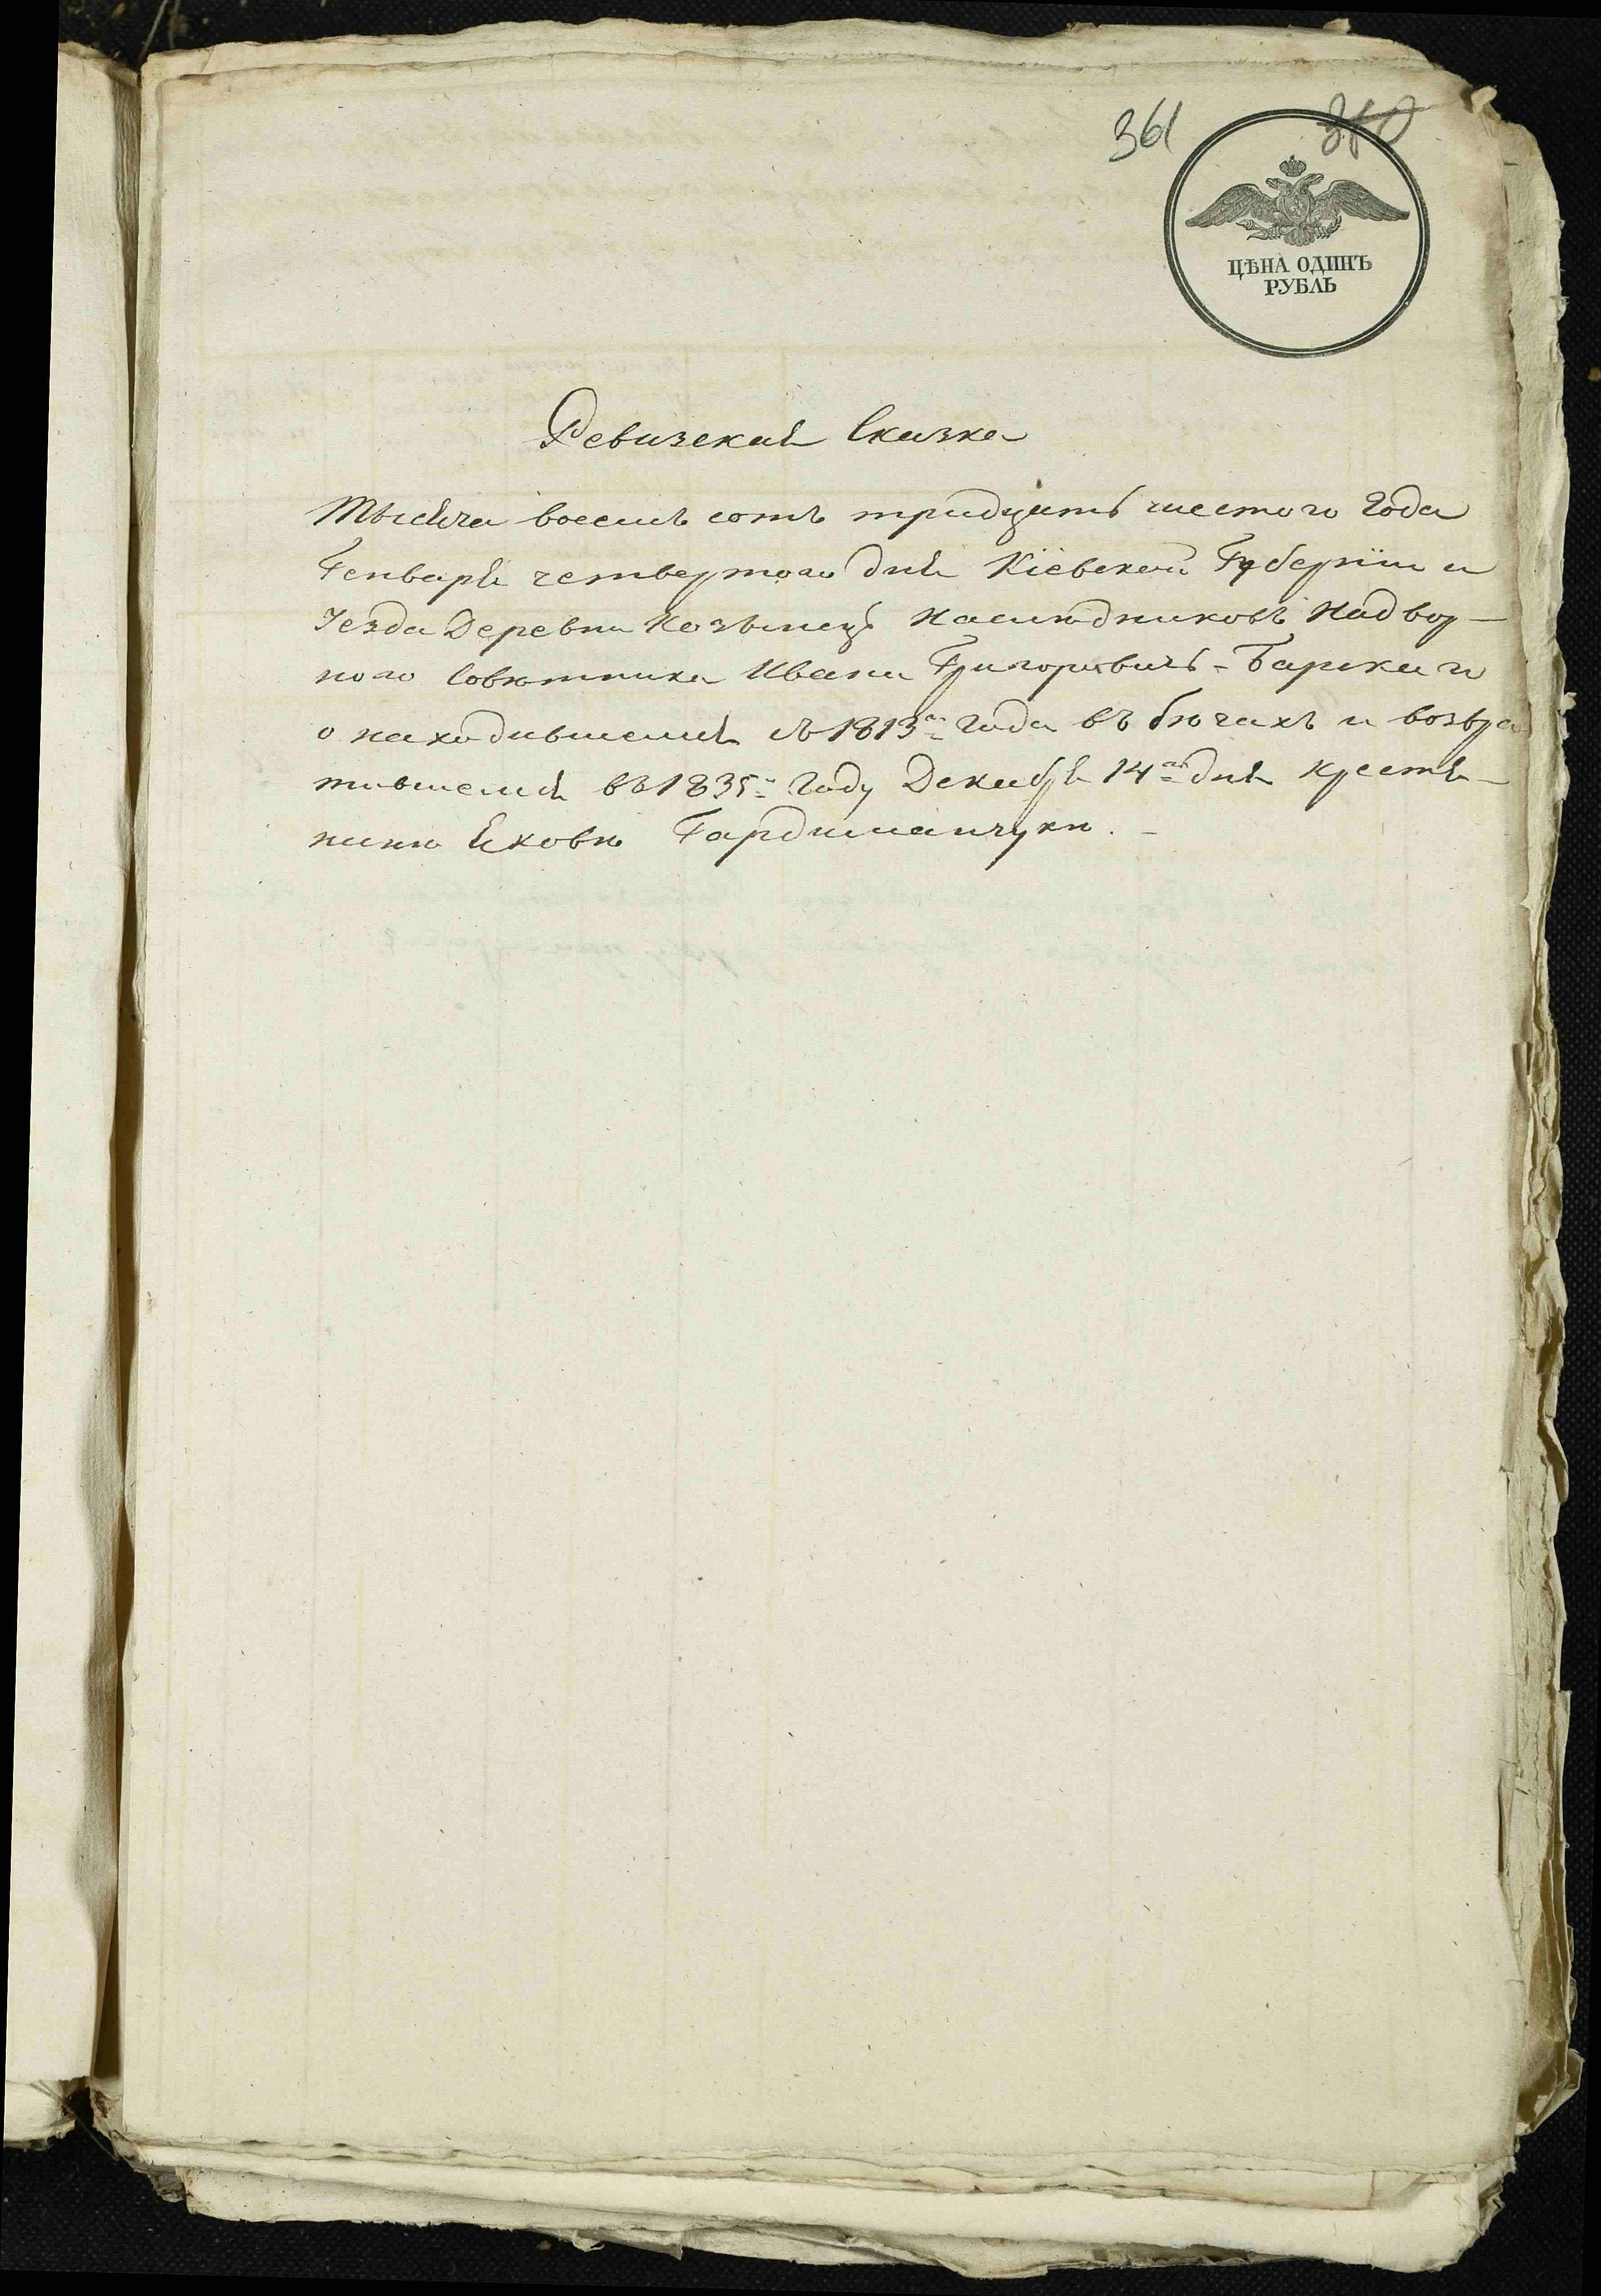 361 310
ЦѢНА ОДИНЪ
РУБЛЬ
Ревизская Сказка
Тысяча восемь сотъ тридцать шестого Года
Генваря четвертого дня Кіевской Губерніи и
Уезда Деревни Наслѣдниковъ Надвор-
ного Совѣтника Ивана Григоровичь-Барскаго
о находившемся съ 1813го года въ бѣгахъ и возвра
тившемся въ 1835м Году Декабря 14го дня крестья-
нинѣ Яковѣ